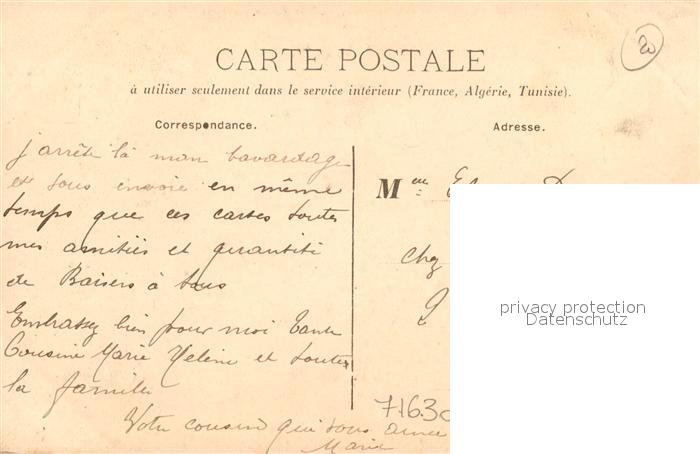 20
CARTE POSTALE
à utiliser seulement dans le service intérieur (France, Algérie, Tunisie).
Correspondance.
Adresse.
j'arrête là mon bavardage
et vous envoie en même
temps que ces cartes toutes
mes amitiés et quantité
de Baisers à tous
Embrassez bien pour moi Tante
Cousine Marie Hélène et toute
la famille
Votre cousine qui vous aime
Marie
M
chez
privacy protection
Datenschutz
7163